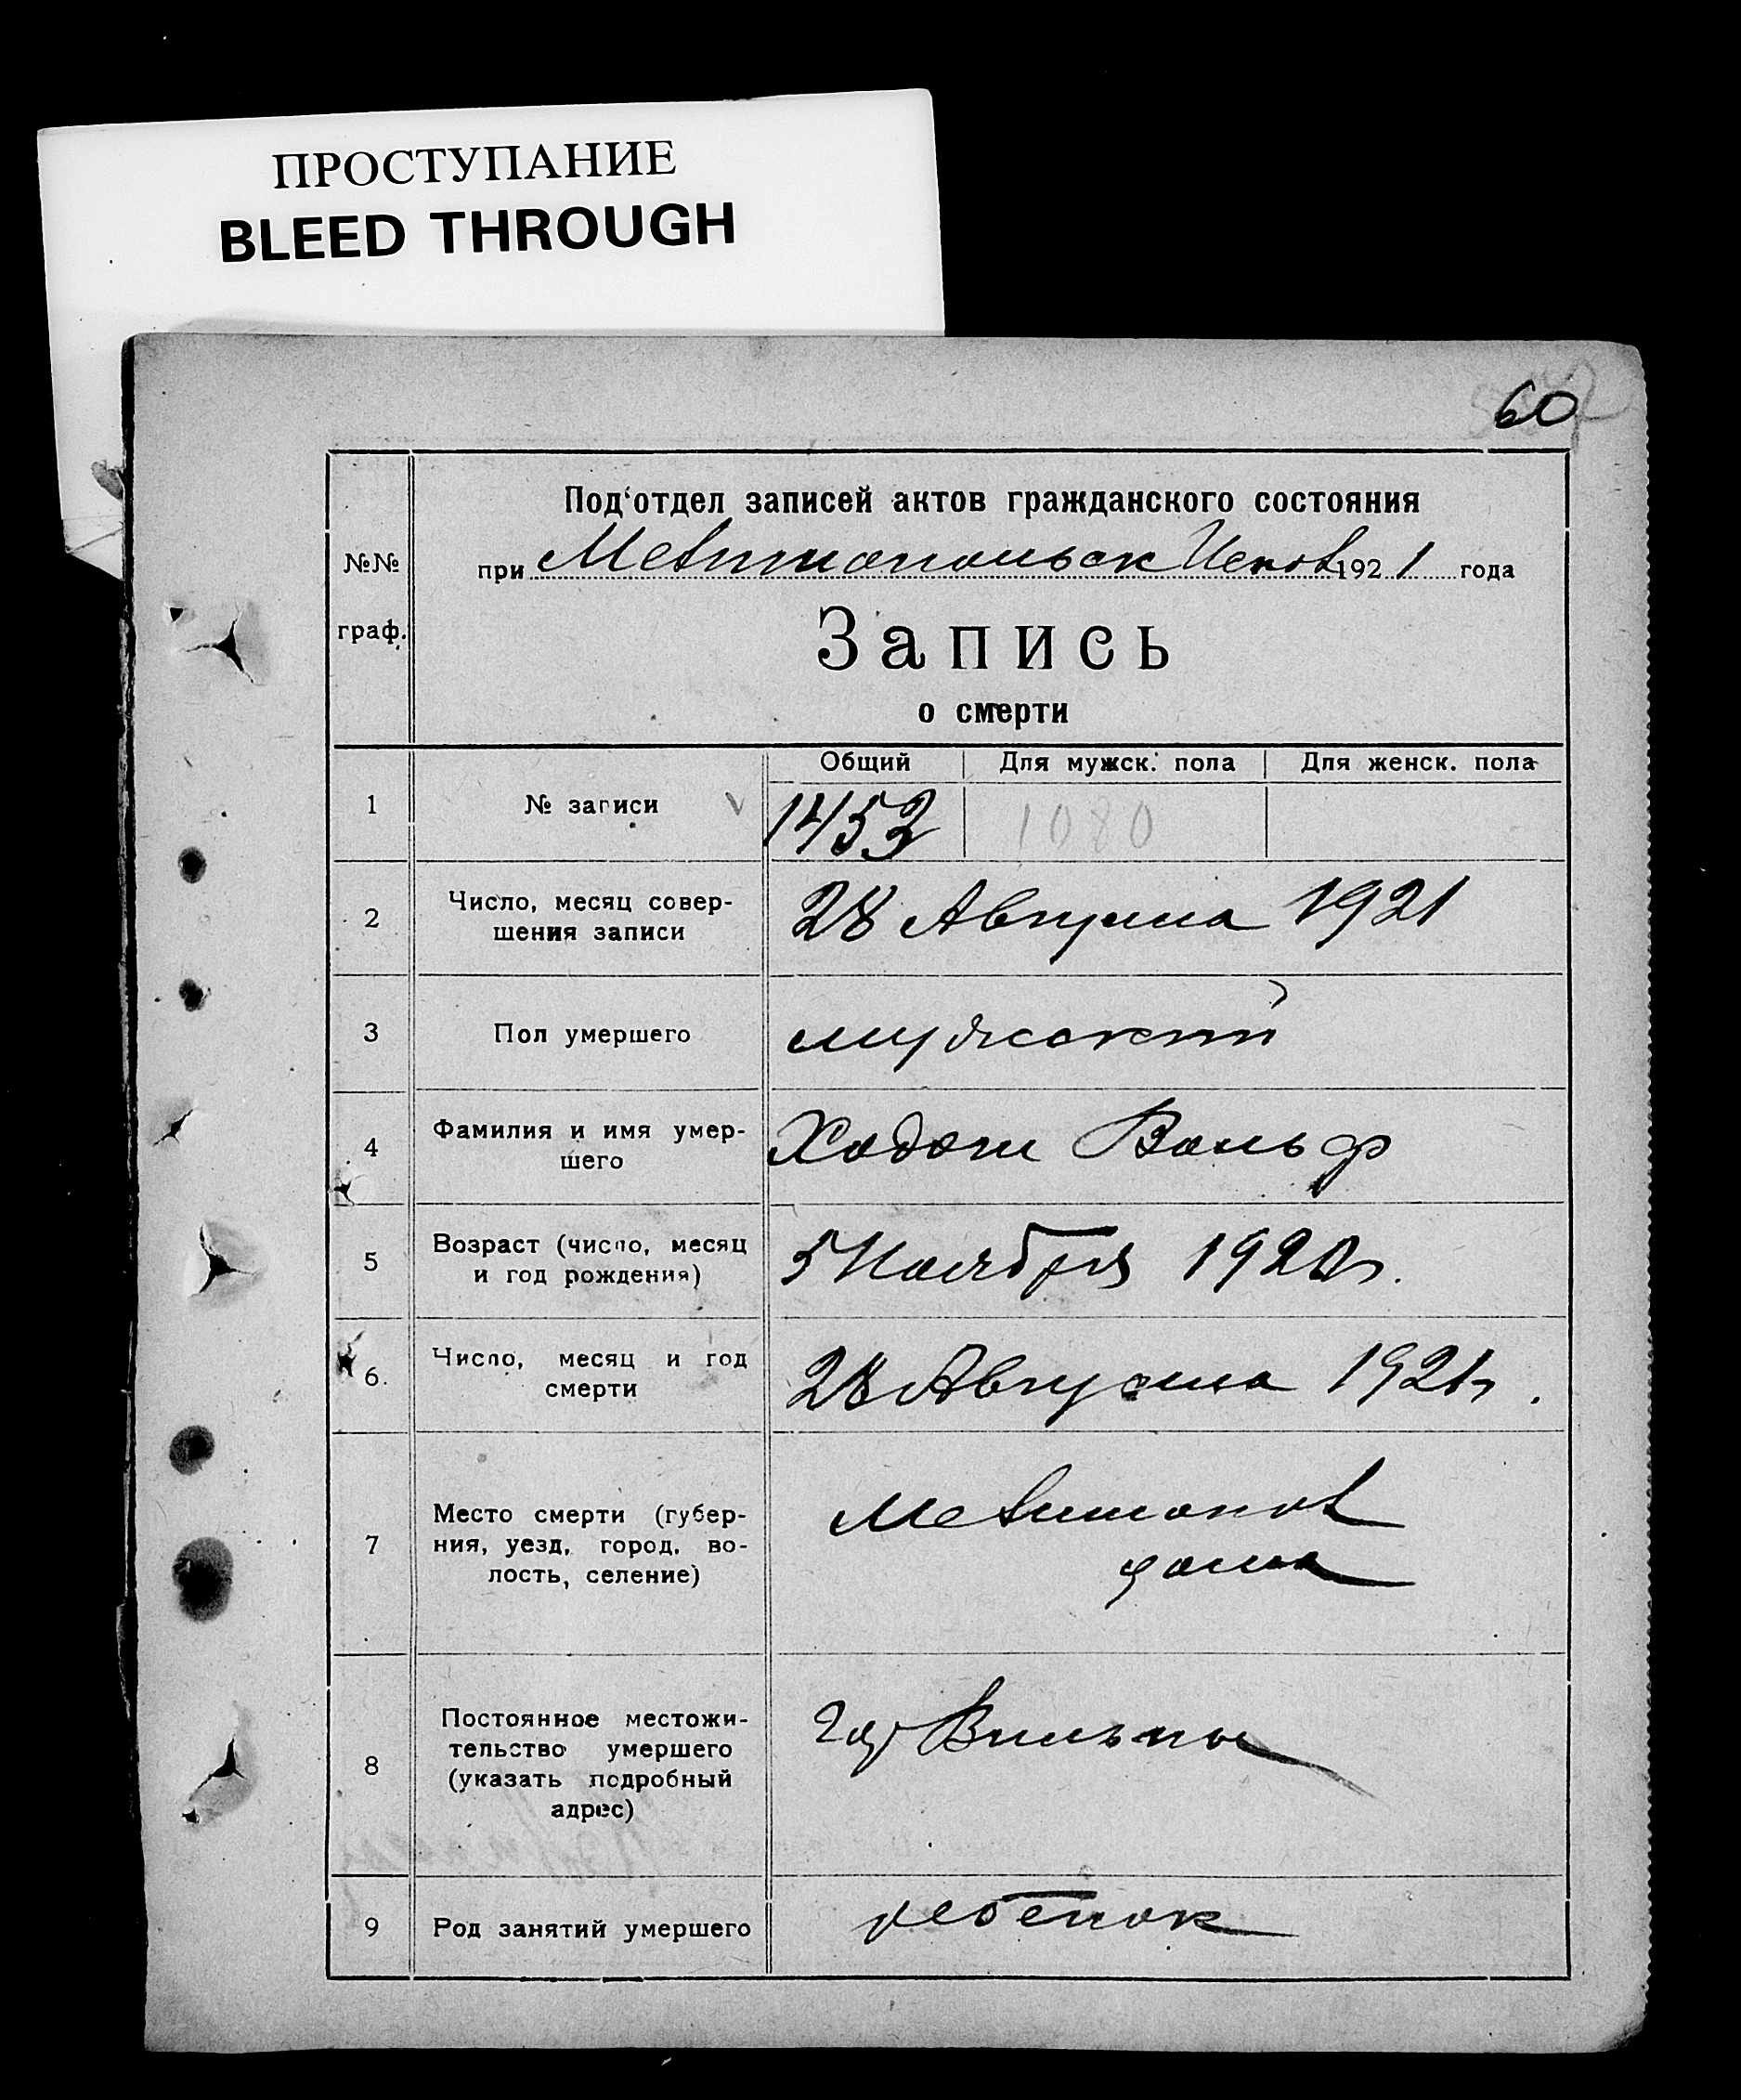 ПРОСТУПАНИЕ
BLEED THROUGH
60
Под‘отдел записей актов гражданского состояния
№№
граф.
при Мелитопольск Исков 1921 года
Запись
о смерти
Общий Для мужск. пола Для женск. пола
1 № записи 1453 1080
2 Число, месяц совер-
шения записи
28 Августа 1921
3 Пол умершего мужский
4 Фамилия и имя умер-
шего
Ходош Вольф
5 Возраст (число, месяц
и год рождения)
5 Ноября 1920 г.
6. Число, месяц и год
смерти
28 Августа 1921 г.
7 Место смерти (губер-
ния, уезд, город, во-
лость, селение)
Мелитопол
дома
8 Постоянное местожи-
тельство умершего
(указать подробный
адрес)
гор Вильны
9 Род занятий умершего ребенок